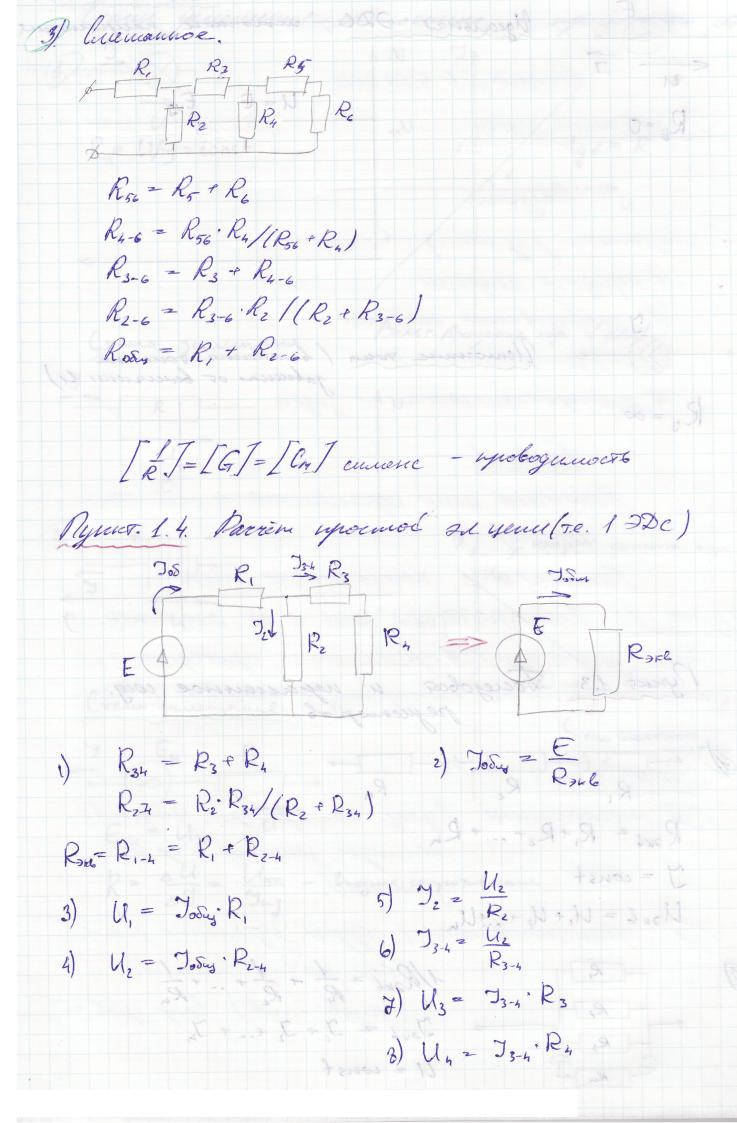 3) Смешанное.
R₁ R₃ R₅
R₂ R₄ R₆
R₅₆ = R₅ + R₆
R₄₋₆ = R₅₆·R₄/(R₅₆ + R₄)
R₃₋₆ = R₃ + R₄₋₆
R₂₋₆ = R₃₋₆·R₂/(R₂ + R₃₋₆)
Rобщ = R₁ + R₂₋₆
[1/R] = [G] = [См] сименс - проводимость
Пункт. 1.4. Расчёт простой эл цепи (т.е. 1 ЭДС)
Iоб R₁ I₃₋₄ R₃ Iобщ
I₂ R₂ R₄ ⇒ E Rэкв
E
1) R₃₄ = R₃ + R₄
2) Iобщ = E/Rэкв
R₂₋₄ = R₂·R₃₄/(R₂ + R₃₄)
Rэкв = R₁₋₄ = R₁ + R₂₋₄
3) U₁ = Iобщ·R₁
4) U₂ = Iобщ·R₂₋₄
5) I₂ = U₂/R₂
6) I₃₋₄ = U₂/R₃₋₄
7) U₃ = I₃₋₄·R₃
8) U₄ = I₃₋₄·R₄